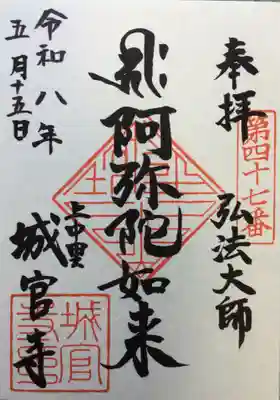 奉拝
第四十七番
弘法大師
阿弥陀如来
上中里
城官寺
令和八年
五月十五日
城官寺印